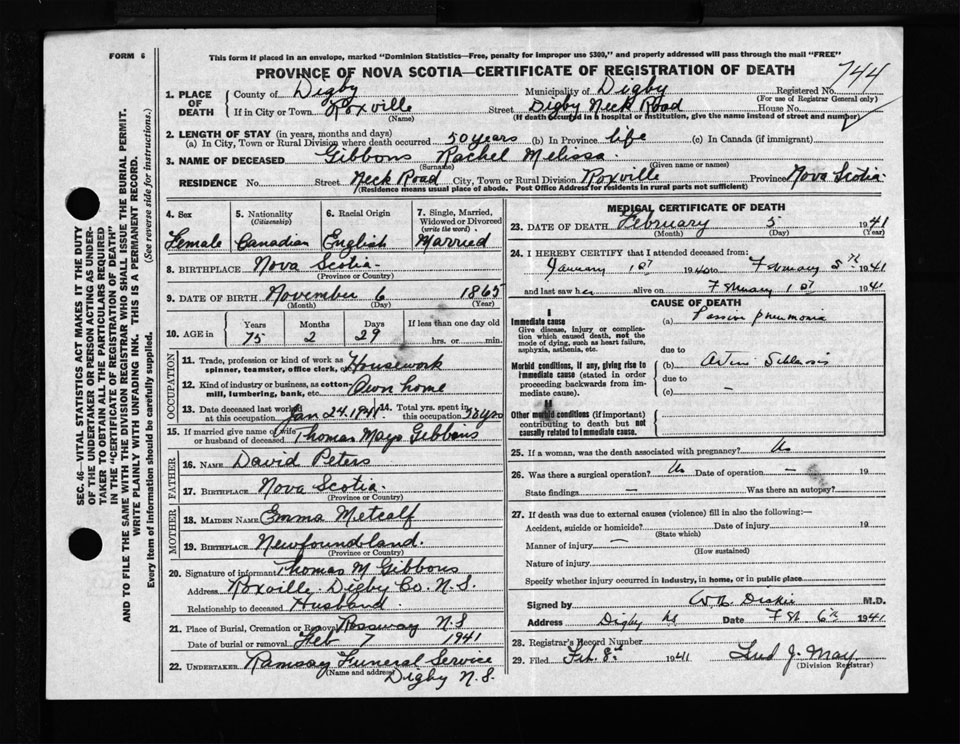 FORM 6
This form if placed in an envelope, marked "Dominion Statistics—Free, penalty for improper use $300," and properly addressed will pass through the mail "FREE"
PROVINCE OF NOVA SCOTIA—CERTIFICATE OF REGISTRATION OF DEATH
744
1. PLACE OF DEATH
County of Digby Municipality of Digby Registered No.
(For use of Registrar General only)
If in City or Town Roxville Street Digby Neck Road House No.
(Name) (If death occurred in a hospital or institution, give the name instead of street and number)
2. LENGTH OF STAY (in years, months and days)
(a) In City, Town or Rural Division where death occurred 50 years (b) In Province life (c) In Canada (if immigrant)
3. NAME OF DECEASED Gibbons Rachel Melissa
(Surname) (Given name or names)
RESIDENCE No. Street Neck Road City, Town or Rural Division Roxville Province Nova Scotia
(Residence means usual place of abode. Post Office Address for residents in rural parts not sufficient)
4. Sex
Female
5. Nationality
(Citizenship)
Canadian
6. Racial Origin
English
7. Single, Married, Widowed or Divorced
(write the word)
Married
8. BIRTHPLACE Nova Scotia
(Province or Country)
9. DATE OF BIRTH November 6 1865
(Month) (Day) (Year)
10. AGE in
Years Months Days If less than one day old
75 2 29 hrs. or min.
OCCUPATION
11. Trade, profession or kind of work as spinner, teamster, office clerk, Housework
12. Kind of industry or business, as cotton-mill, lumbering, bank, etc. Own home
13. Date deceased last worked at this occupation Jan 24. 1941
14. Total yrs. spent in this occupation
15. If married give name of wife or husband of deceased Thomas Mayo Gibbons
FATHER
16. NAME David Peters
17. BIRTHPLACE Nova Scotia
(Province or Country)
MOTHER
18. MAIDEN NAME Emma Metcalf
19. BIRTHPLACE Newfoundland.
(Province or Country)
20. Signature of informant Thomas M Gibbons
Address Roxville. Digby Co. N.S.
Relationship to deceased Husband
21. Place of Burial, Cremation or Removal Rossway N S
Date of burial or removal Feb 7 1941
22. UNDERTAKER Ramsay Funeral Service
(Name and address) Digby N.S.
MEDICAL CERTIFICATE OF DEATH
23. DATE OF DEATH February 5 1941
(Month) (Day) (Year)
24. I HEREBY CERTIFY that I attended deceased from:
January 1st 1940 to February 5th 1941
and last saw her alive on February 1st 1941
CAUSE OF DEATH
I
Immediate cause
Give disease, injury or complication which caused death, not the mode of dying, such as heart failure, asphyxia, asthenia, etc.
(a) Passive pneumonia
due to
Morbid conditions, if any, giving rise to immediate cause (stated in order proceeding backwards from immediate cause).
(b)
due to
(c) —
II
Other morbid conditions (if important) contributing to death but not causally related to immediate cause.
25. If a woman, was the death associated with pregnancy? No
26. Was there a surgical operation? No Date of operation — 19
State findings — Was there an autopsy?
27. If death was due to external causes (violence) fill in also the following:—
Accident, suicide or homicide? Date of injury 19
(State which)
Manner of injury —
(How sustained)
Nature of injury
Specify whether injury occurred in industry, in home, or in public place
Signed by M.D.
Address Digby NS Date Feb 6th 1941
28. Registrar's Record Number
29. Filed Feb. 8th 1941
(Division Registrar)
SEC. 46—VITAL STATISTICS ACT MAKES IT THE DUTY
OF THE UNDERTAKER OR PERSON ACTING AS UNDER-
TAKER TO OBTAIN ALL THE PARTICULARS REQUIRED
IN THE "CERTIFICATE OF REGISTRATION OF DEATH"
AND TO FILE THE SAME WITH THE DIVISION REGISTRAR WHO SHALL ISSUE THE BURIAL PERMIT.
WRITE PLAINLY WITH UNFADING INK. THIS IS A PERMANENT RECORD.
Every item of information should be carefully supplied. (See reverse side for instructions.)